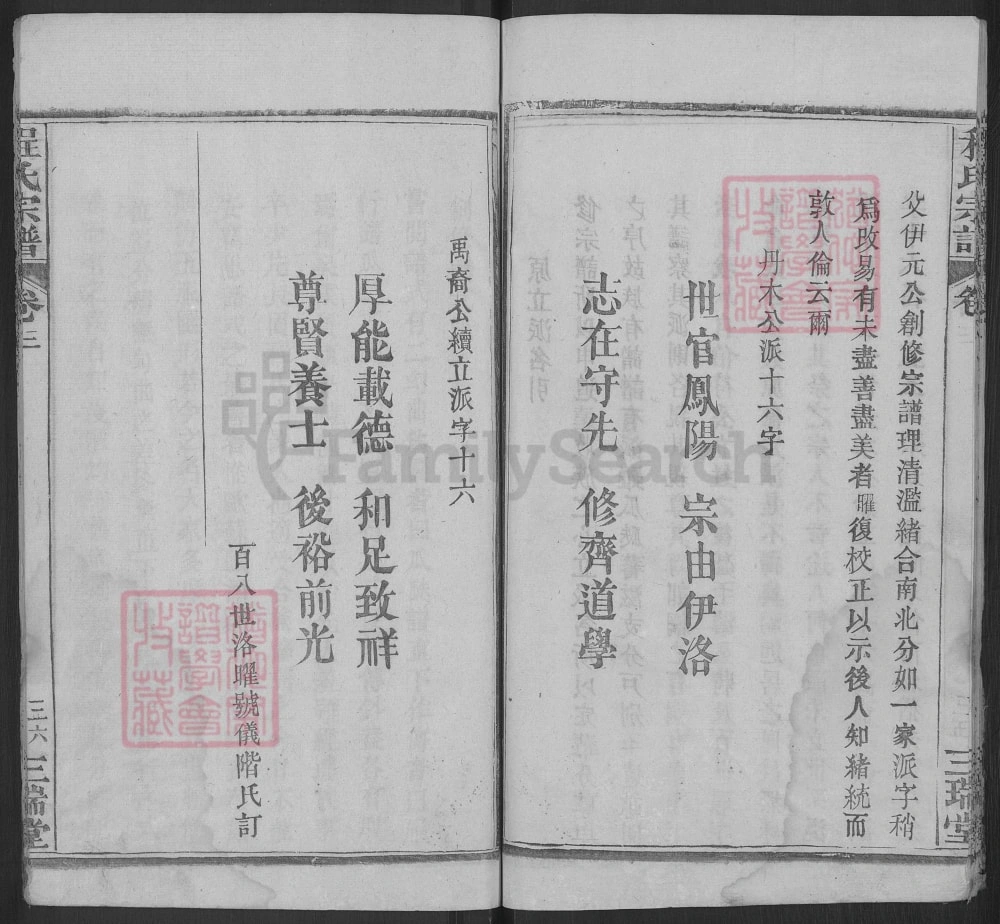 父伊元公創修宗譜理清濫緒合南北分如一家派字稍
爲攺易有未盡善盡美者曜復校正以示後人知緒統而
敦人倫云爾
丹木公派十六字
世官鳳陽 宗由伊洛
志在守先 修齊道學
三瑞堂
程氏宗譜 卷三
禹裔公續立派字十六
厚能載德 和足致祥
尊賢養士 後裕前光
百入世洛曜號儀階氏訂
程氏宗譜 卷三
三六 三瑞堂
FamilySearch